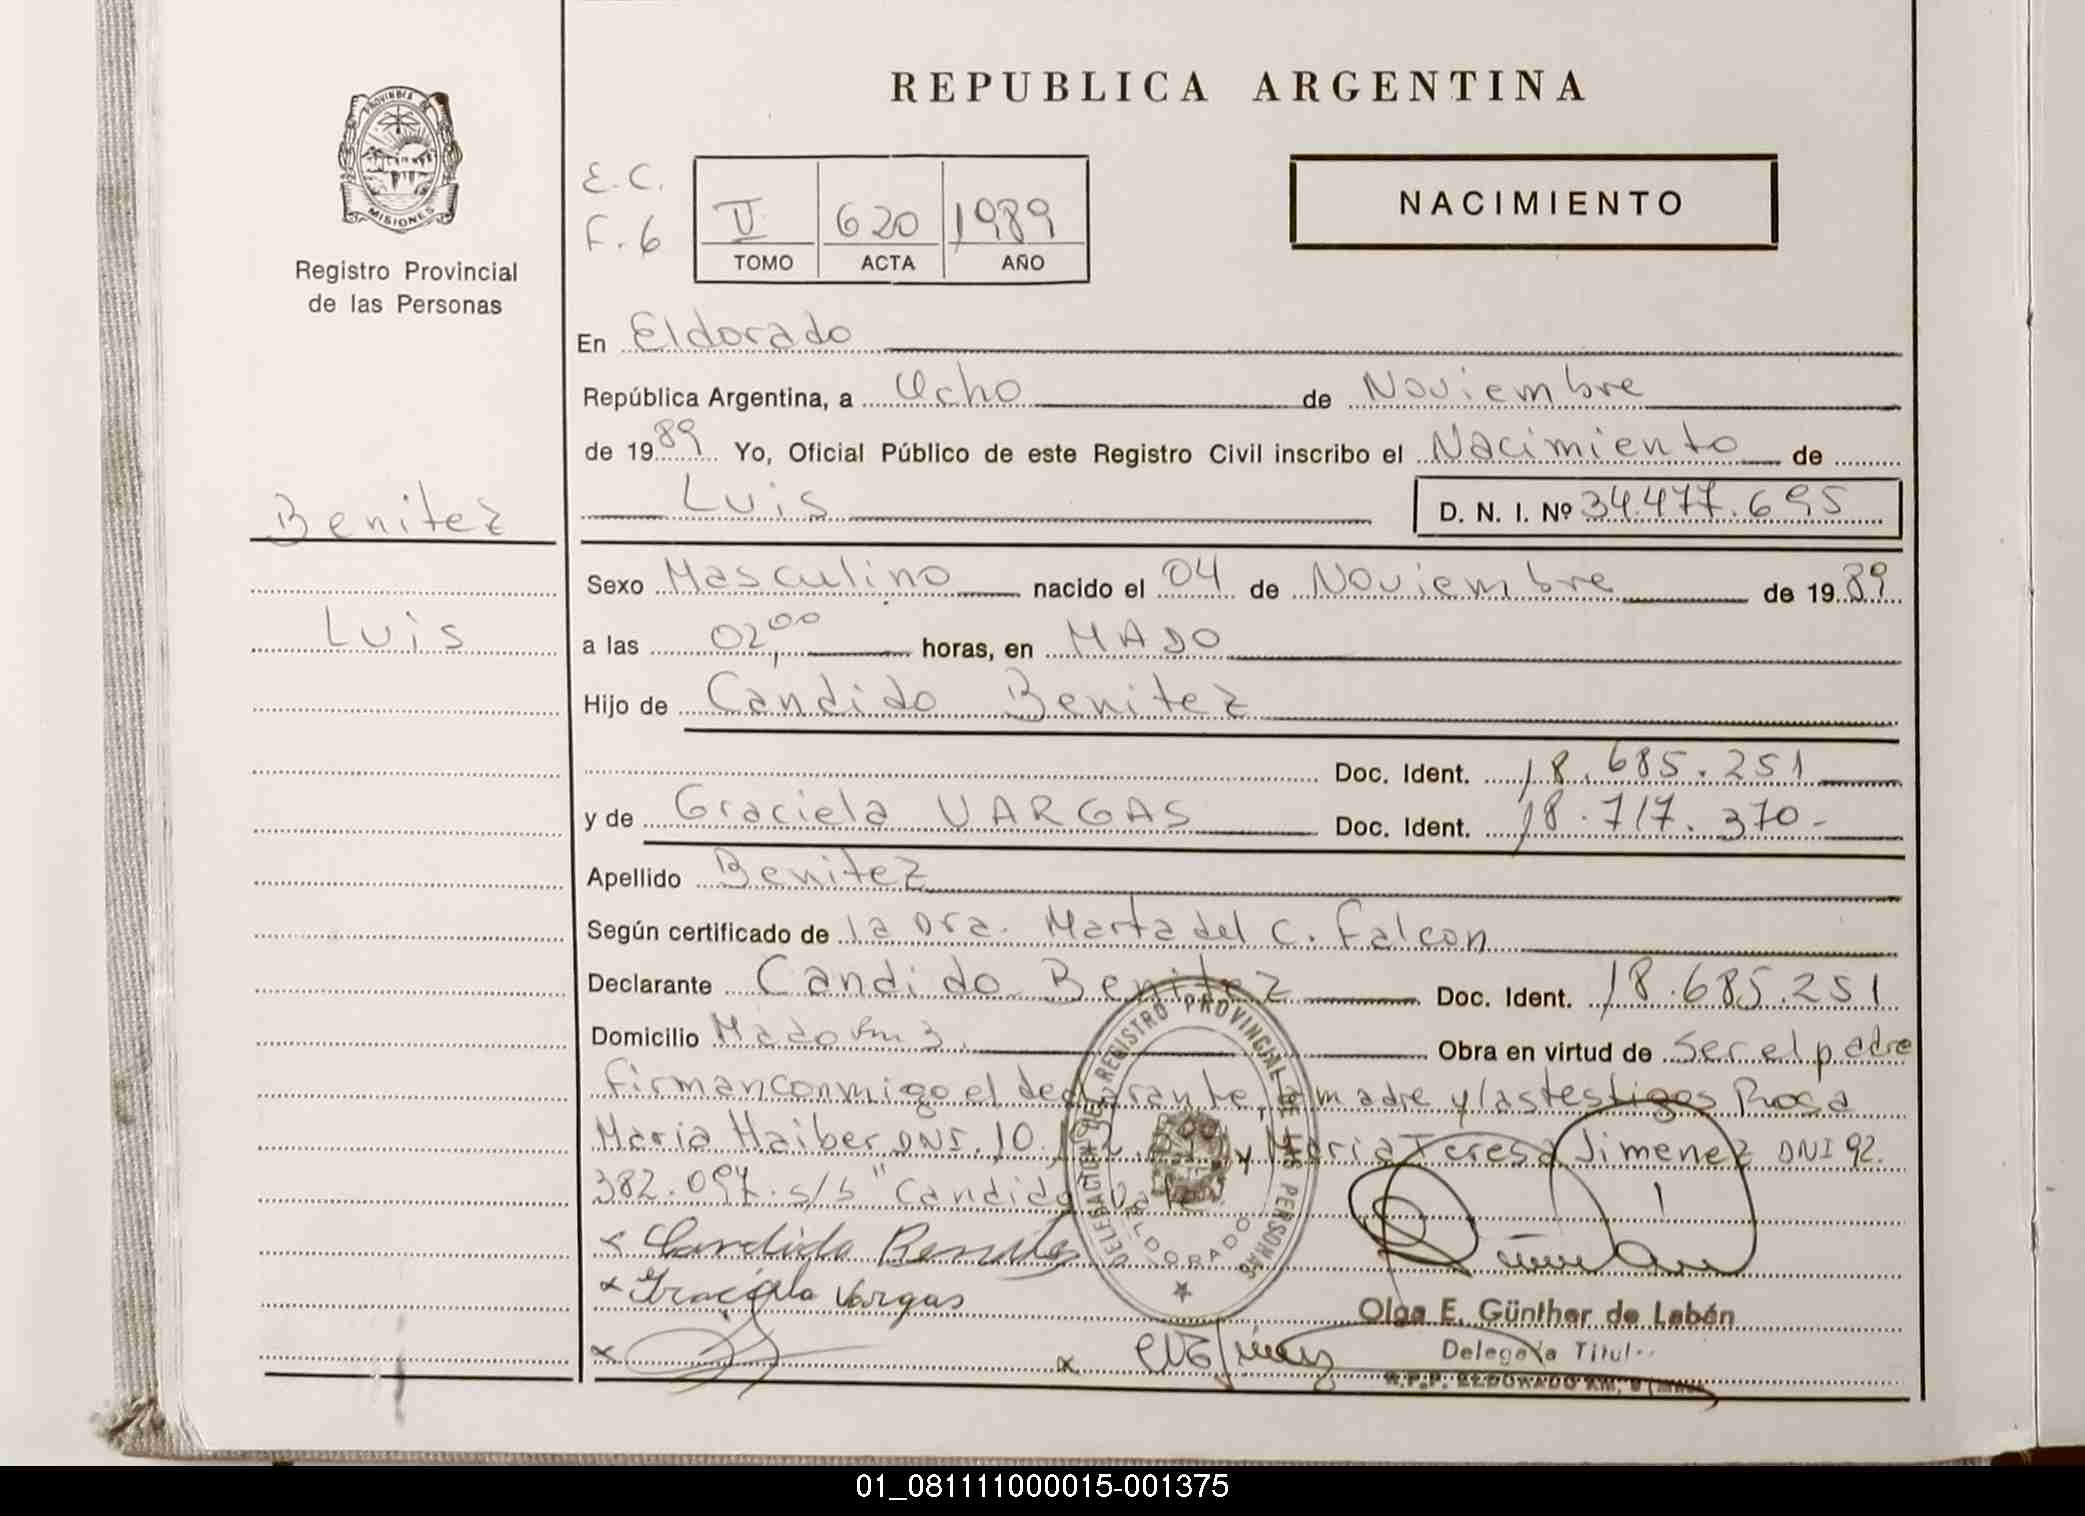 REPUBLICA ARGENTINA
PROVINCIA DE
MISIONES
Registro Provincial
de las Personas
E.C.
F. 6
II 620 1989
TOMO ACTA AÑO
NACIMIENTO
En Eldorado
República Argentina, a Ocho de Noviembre
de 1989 Yo, Oficial Público de este Registro Civil inscribo el Nacimiento de
Luis D. N. I. Nº 34.477.695
Benitez
Luis
Sexo Masculino nacido el 04 de Noviembre de 1989
a las 02,00 horas, en MADO
Hijo de Candido Benitez
Doc. Ident. 18.685.251
y de Graciela VARGAS Doc. Ident. 18.717.370-
Apellido Benitez
Según certificado de la Dra. Marta del C. Falcon
Declarante Candido Benitez Doc. Ident. 18.685.251
Domicilio Mado Km 3. Obra en virtud de Ser el padre
firman conmigo el declarante, la madre y las testigos Rosa
Maria Haiber DNI. 10. y Maria Teresa Jimenez DNI 92.
382.097. s/b "Candido" Vale
x Candido Benitez
x Graciela Vargas
x x
DELEGACION DE REGISTRO PROVINCIAL DE LAS PERSONAS
ELDORADO
Olga E. Günther de Labán
Delegada Titul
R.P.P. ELDORADO KM. 9
01_081111000015-001375